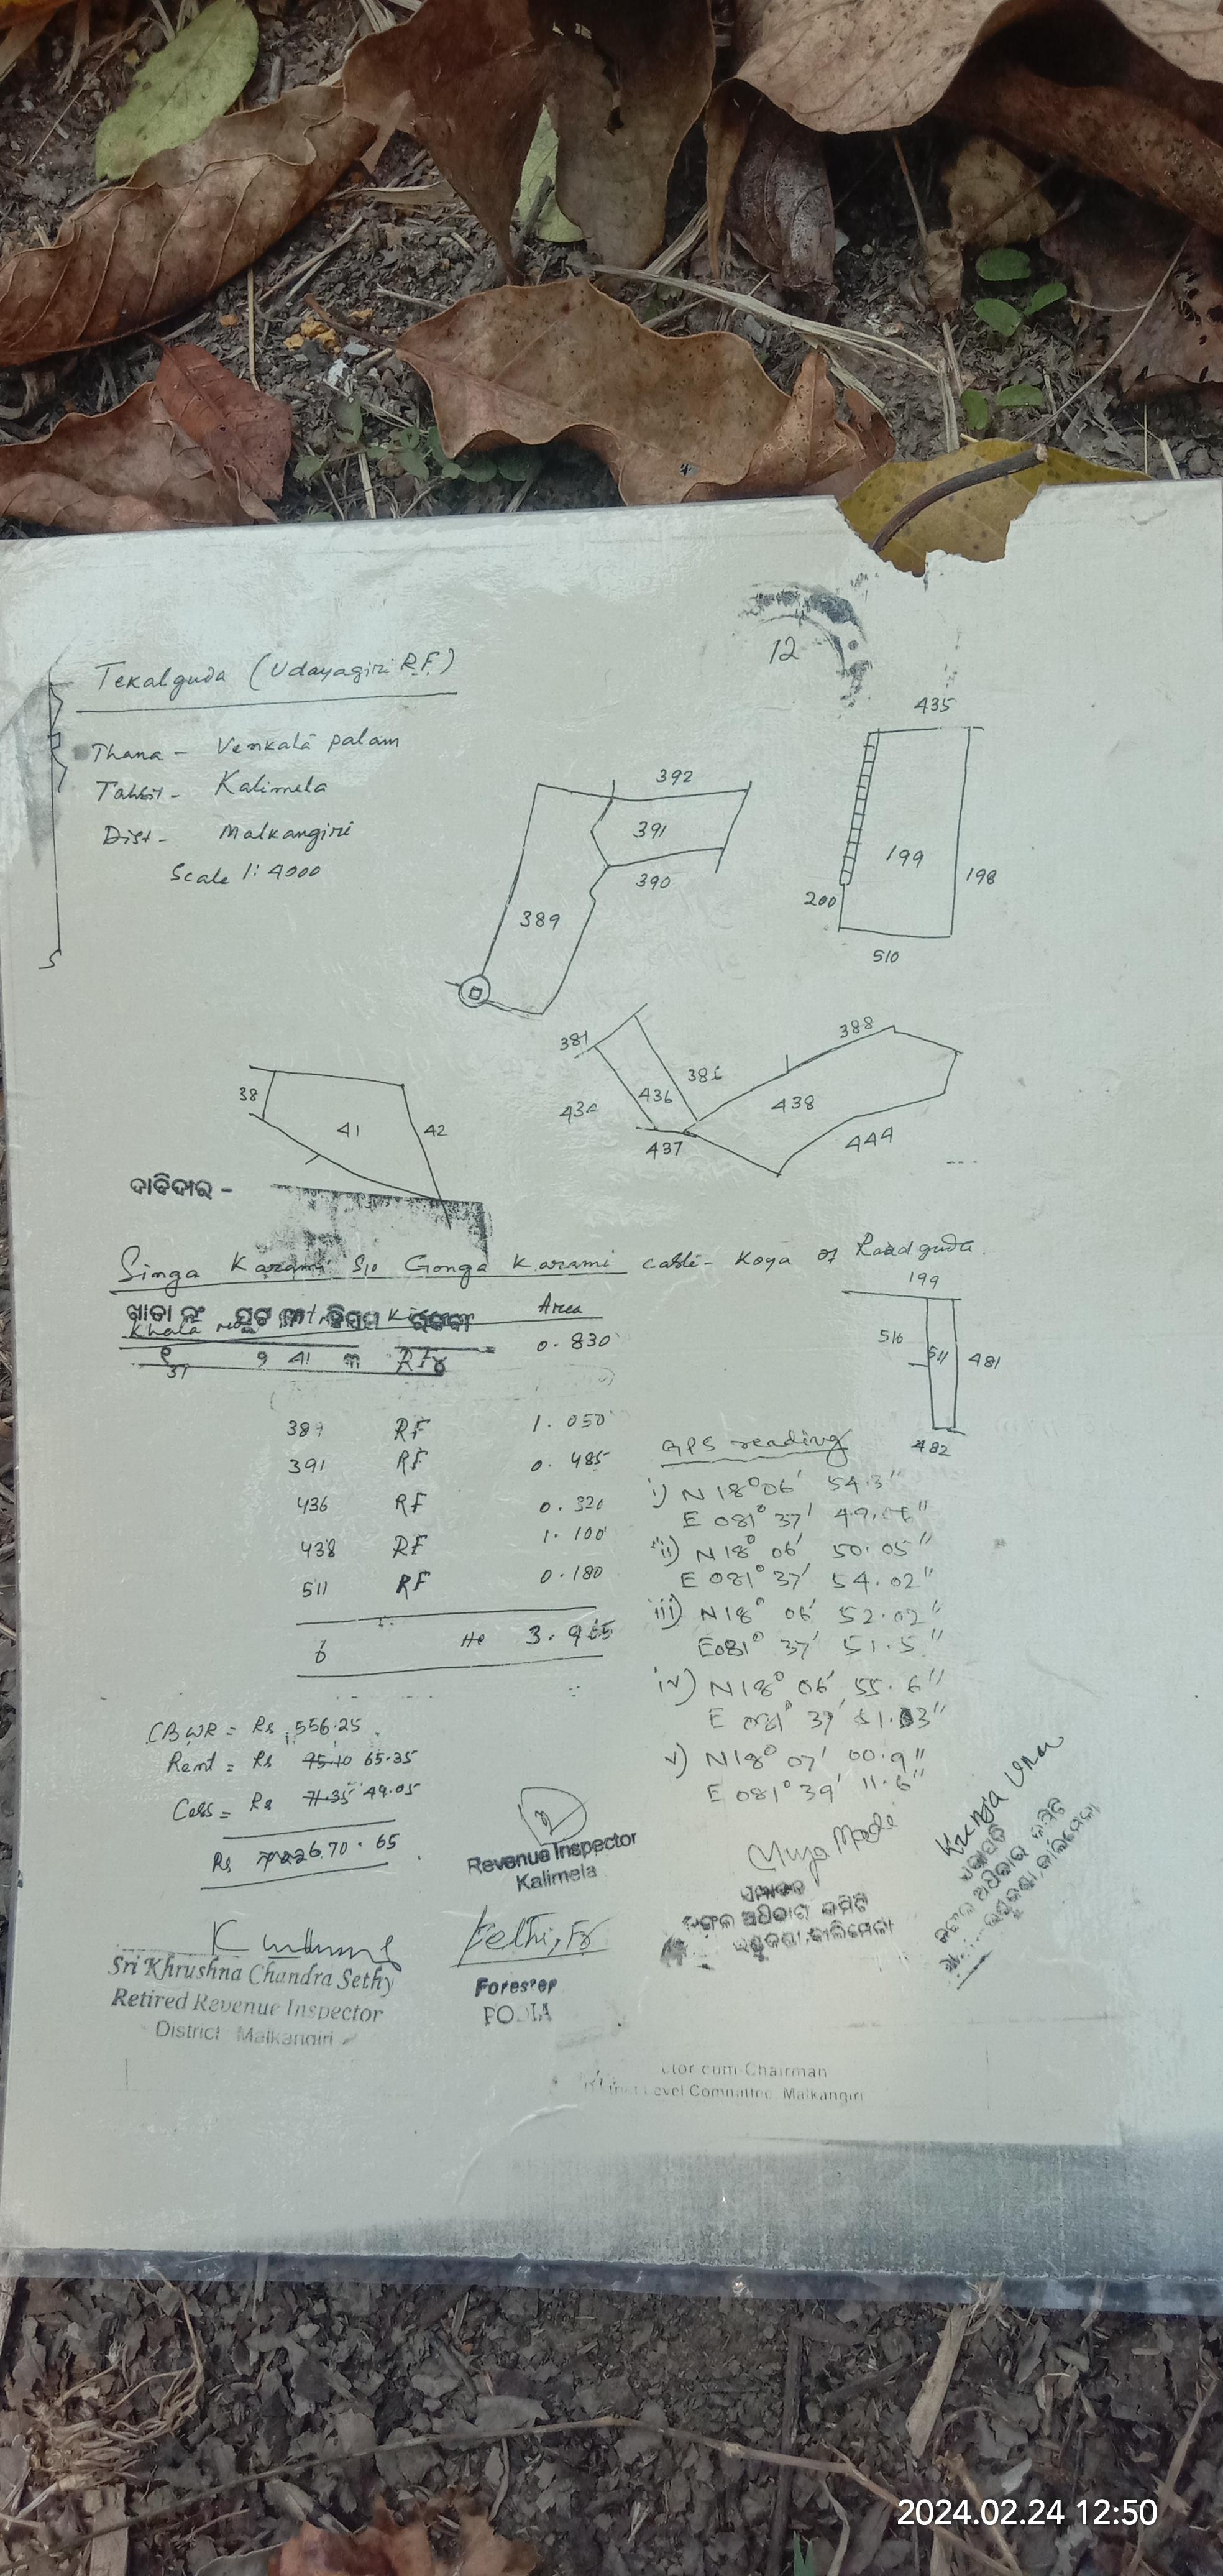 12
Tekalguda (Udayagiri R.F.)
Thana - Venkata palam
Tahsil - Kalimela
Dist - Malkangiri
Scale 1: 4000
392
391
390
389
435
199
198
200
510
38
41
42
381
436
437
388
438
444
ଦାବିଦାର -
Singa Karami S/o Gonga Karami caste - Koya of Raadguda
ଖାତା ନଂ ପ୍ଲଟ ନଂ କିସମ ରକବା Area
Khata
31 9 41 ୩ RF 0.830
389 RF 1.050
391 RF 0.485
436 RF 0.320
438 RF 1.100
511 RF 0.180
6 He 3.965
199
510
511
481
482
GPS reading
i) N 18° 06' 54.3"
E 081° 37'
ii) N 18° 06' 50.05"
E 081° 37' 54.02"
iii) N 18° 06' 52.02"
E 081° 37' 51.5"
iv) N 18° 06' 55.6"
E 081° 37'
v) N 18° 07' 00.9"
E 081° 39' 11.6"
CBWR = Rs 556.25
Rent = Rs 45.10 65.35
Cess = Rs 71.35 49.05
Rs 670.65
Revenue Inspector
Kalimela
Sri Khrushna Chandra Sethy
Retired Revenue Inspector
District Malkangiri
Forester
Muya Made
ସମ୍ପାଦକ
ଜଙ୍ଗଲ ଅଧିକାର କମିଟି
ସଭାପତି
ଜଙ୍ଗଲ ଅଧିକାର କମିଟି
cum-Chairman
Level Committee, Malkangiri
2024.02.24 12:50